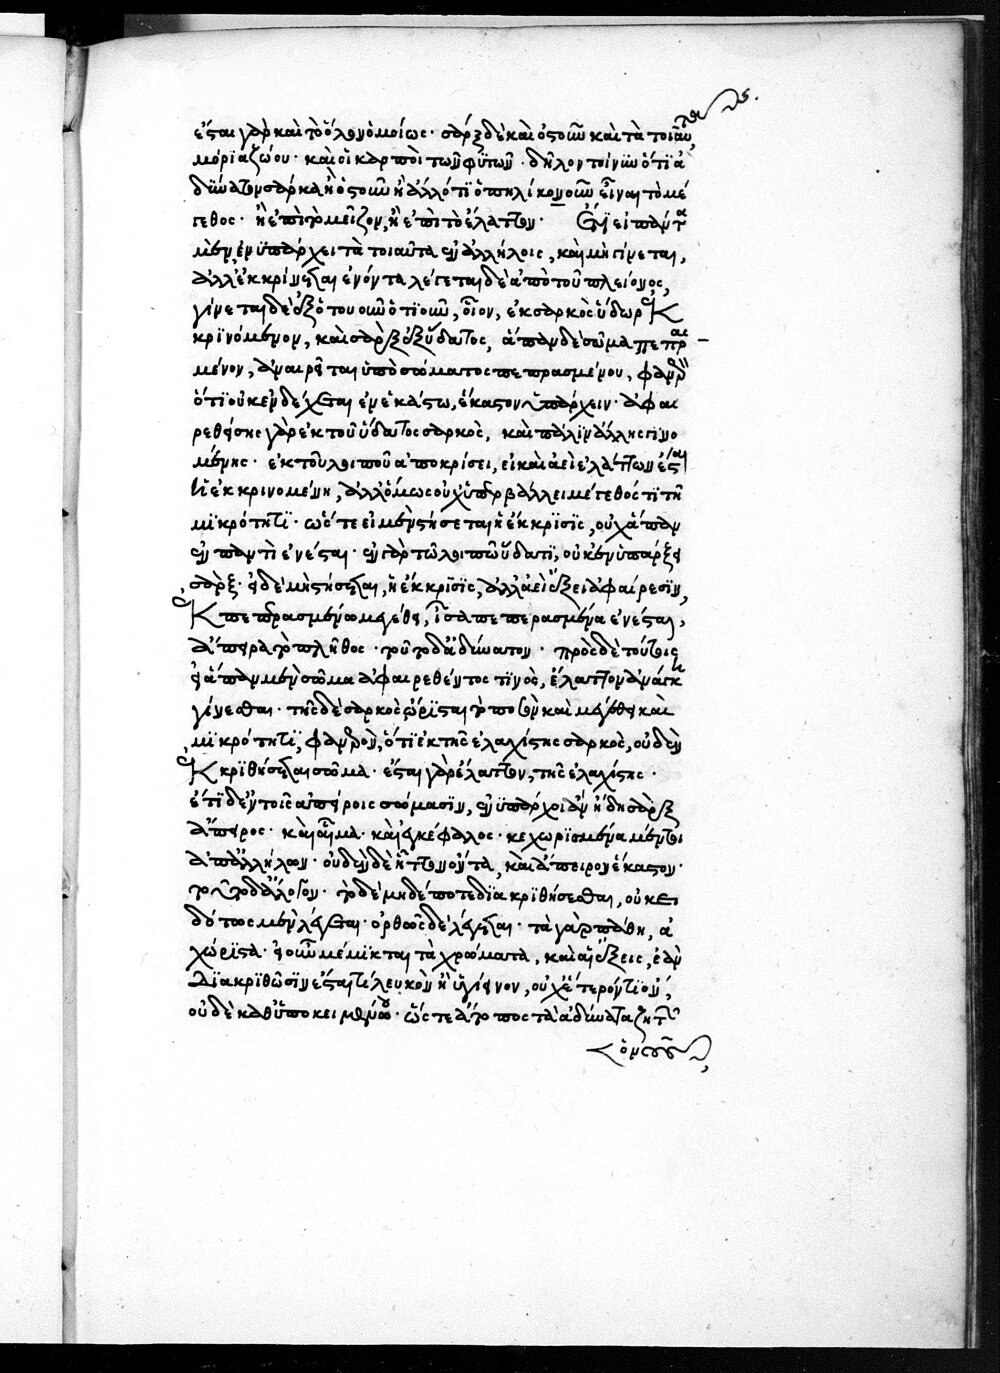 ἔσται γὰρ καὶ τὸ ὅλον ὁμοίως· σὰρξ δὲ καὶ ὀστοῦν καὶ τὰ τοιαῦτα
μόρια ζώου· καὶ οἱ καρποὶ τῶν φυτῶν· δῆλον τοίνυν ὅτι ἀ
δύνατον σάρκα ἢ ὀστοῦν ἢ ἄλλό τι ὁπηλίκον οὖν εἶναι τὸ μέ
γεθος· ἢ ἐπὶ τὸ μεῖζον, ἢ ἐπὶ τὸ ἔλαττον· Ἔτι εἰ πάντα
μὲν ἐνυπάρχει τὰ τοιαῦτα ἐν ἀλλήλοις, καὶ μὴ γίνεται,
ἀλλ' ἐκκρίνεσθαι ἐνόντα λέγεται δὲ ἀπὸ τοῦ πλείονος,
γίνεται δὲ ἐξ ὁτουοῦν ὁτιοῦν, οἷον, ἐκ σαρκὸς ὕδωρ ἐκ
κρινόμενον, καὶ σὰρξ ἐξ ὕδατος, ἅπαν δὲ σῶμα πεπερασ
μένον, ἀναιρεῖται ὑπὸ σώματος πεπερασμένου, φανερὸν
ὅτι οὐκ ἐνδέχεται ἐν ἑκάστω, ἕκαστον ὑπάρχειν· ἀφαι
ρεθείσης γὰρ ἐκ τοῦ ὕδατος σαρκὸς, καὶ πάλιν ἄλλης γινο
μένης· ἐκ τοῦ λοιποῦ ἀποκρίσει, εἰ καὶ ἀεὶ ἐλάττων ἔσται
ἡ ἐκκρινομένη, ἀλλ' ὅμως οὐχ ὑπερβάλλει μέγεθός τι τῆ
μικρότητι· ὥστε εἰ μὲν στήσεται ἡ ἔκκρισις, οὐχ ἅπαν
ἐν παντὶ ἐνέσται· ἐν γὰρ τῶ λοιπῶ ὕδατι, οὐκ ἐνυπάρξει
σὰρξ· εἰ δὲ μὴ στήσεται, ἡ ἔκκρισις, ἀλλ' ἀεὶ ἕξει ἀφαίρεσιν,
ἐκ πεπερασμένω μεγέθει, ἴσα πεπερασμένα ἐνέσται,
ἄπειρα τὸ πλῆθος· τοῦτο δ' ἀδύνατον· πρὸς δὲ τούτοις
εἰ ἅπαν μὲν σῶμα ἀφαιρεθέντος τινὸς, ἔλαττον ἀνάγκη
γίνεσθαι· τῆς δὲ σαρκὸς ὥρισται τὸ ποσὸν καὶ μεγέθει καὶ
μικρότητι, φανερὸν, ὅτι ἐκ τῆς ἐλαχίστης σαρκὸς, οὐδὲν
ἐκκριθήσεται σῶμα· ἔσται γὰρ ἔλαττον, τῆς ἐλαχίστης·
ἔτι δ' ἐν τοῖς ἀπείροις σώμασιν, ἐνυπάρχοι ἂν ἤδη σὰρξ
ἄπειρος· καὶ αἷμα· καὶ ἐγκέφαλος· κεχωρισμένα μέντοι
ἀπ' ἀλλήλων· οὐδὲν δὲ ἧττον ὄντα, καὶ ἄπειρον ἕκαστον·
τοῦτο δ' ἄλογον· τὸ δὲ μηδέποτε διακριθήσεσθαι, οὐκ εἰ
δότως μὲν λέγεται· ὀρθῶς δὲ λέγεται· τὰ γὰρ πάθη, ἀ
χώριστα· εἰ οὖν μέμικται τὰ χρώματα, καὶ αἱ ἕξεις, ἐὰν
διακριθῶσιν ἔσται τι λευκὸν ἢ ὑγιεινὸν, οὐχ ἕτερόν τι ὂν,
οὐδὲ καθ' ὑποκειμένου· ὥστε ἄτοπος τὰ ἀδύνατα ζητῶν
ὁ νοῦς